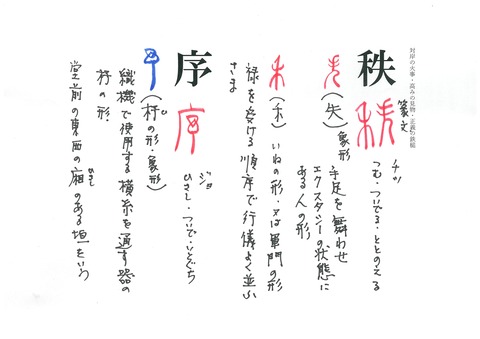 対岸の火事・高みの見物・正義の鉄槌
秩 篆文
チツ
つむ・ついでる・ととのえる
(失) 象形
手足を舞わせ
エクスタシーの状態に
ある人の形
(禾) いねの形・又は軍門の形
禄を受ける順序で行儀よく並ぶ
さま
序
ジョ
ひさし・ついで・いとぐち
(杼の形・象形)
織機で使用する横糸を通す器の
杼の形
堂前の東西の廂のある垣をいう
ひさし